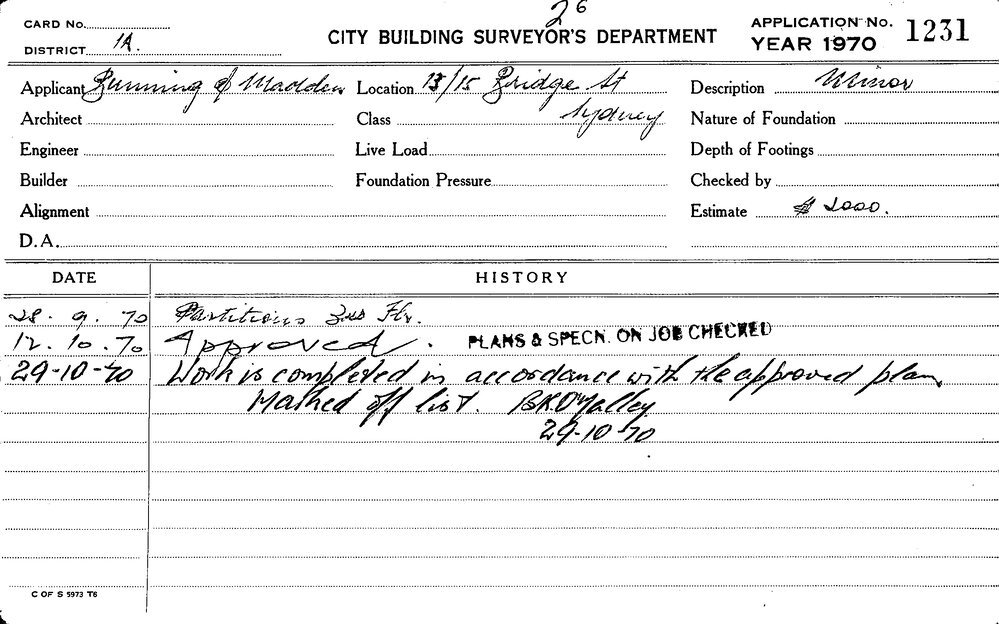 26
CARD No.
DISTRICT 1A.
CITY BUILDING SURVEYOR'S DEPARTMENT
APPLICATION No. 1231
YEAR 1970
Applicant Bunning & Madden Location 13/15 Bridge St Description Minor
Architect Class Sydney Nature of Foundation
Engineer Live Load Depth of Footings
Builder Foundation Pressure Checked by
Alignment Estimate $ 2000.
D.A.
DATE HISTORY
28. 9. 70 Partitions Flr.
12. 10. 70 Approved. PLANS & SPECN. ON JOB CHECKED
29-10-70 Work is completed in accordance with the approved plan
Marked off list. B.K.O'Malley
29-10-70
C OF S 5973 T6